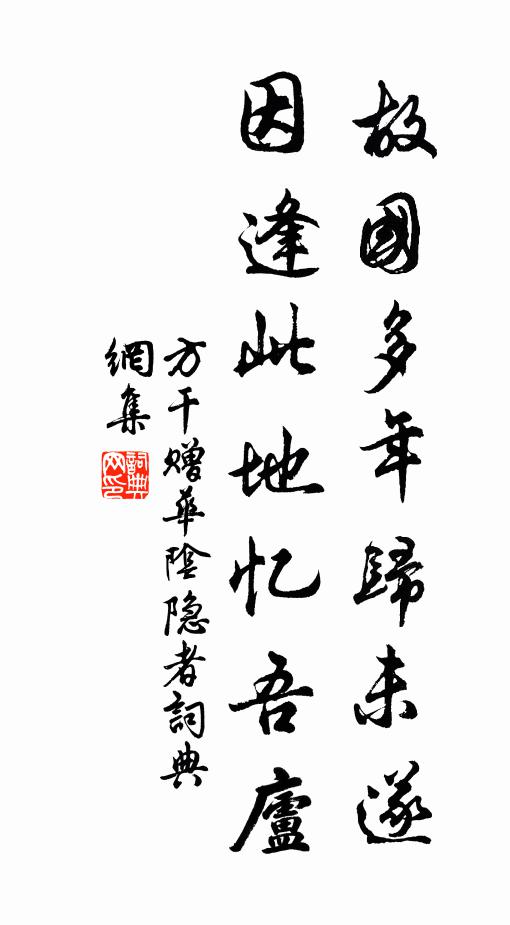 故國多年歸未遂
因逢此地忆吾廬
方干赠華陰隐者詞典
網集
詞典
网印